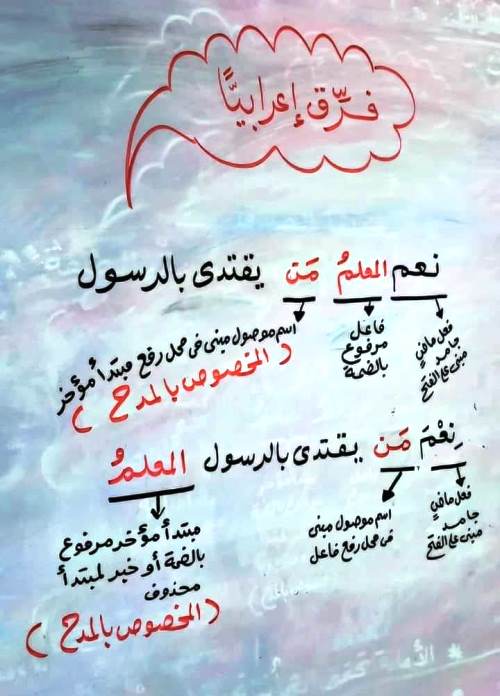 فرِّق إعرابيًّا
نعم المعلمُ مَن يقتدى بالرسول
فعل ماضٍ
جامد
مبنى على الفتح
فاعل
مرفوع
بالضمة
اسم موصول مبنى فى محل رفع مبتدأ مؤخر
(المخصوص بالمدح)
نِعْمَ مَن يقتدى بالرسول المعلمُ
فعل ماضٍ
جامد
مبنى على الفتح
اسم موصول مبنى
فى محل رفع فاعل
مبتدأ مؤخر مرفوع
بالضمة أو خبر لمبتدأ
محذوف
(المخصوص بالمدح)